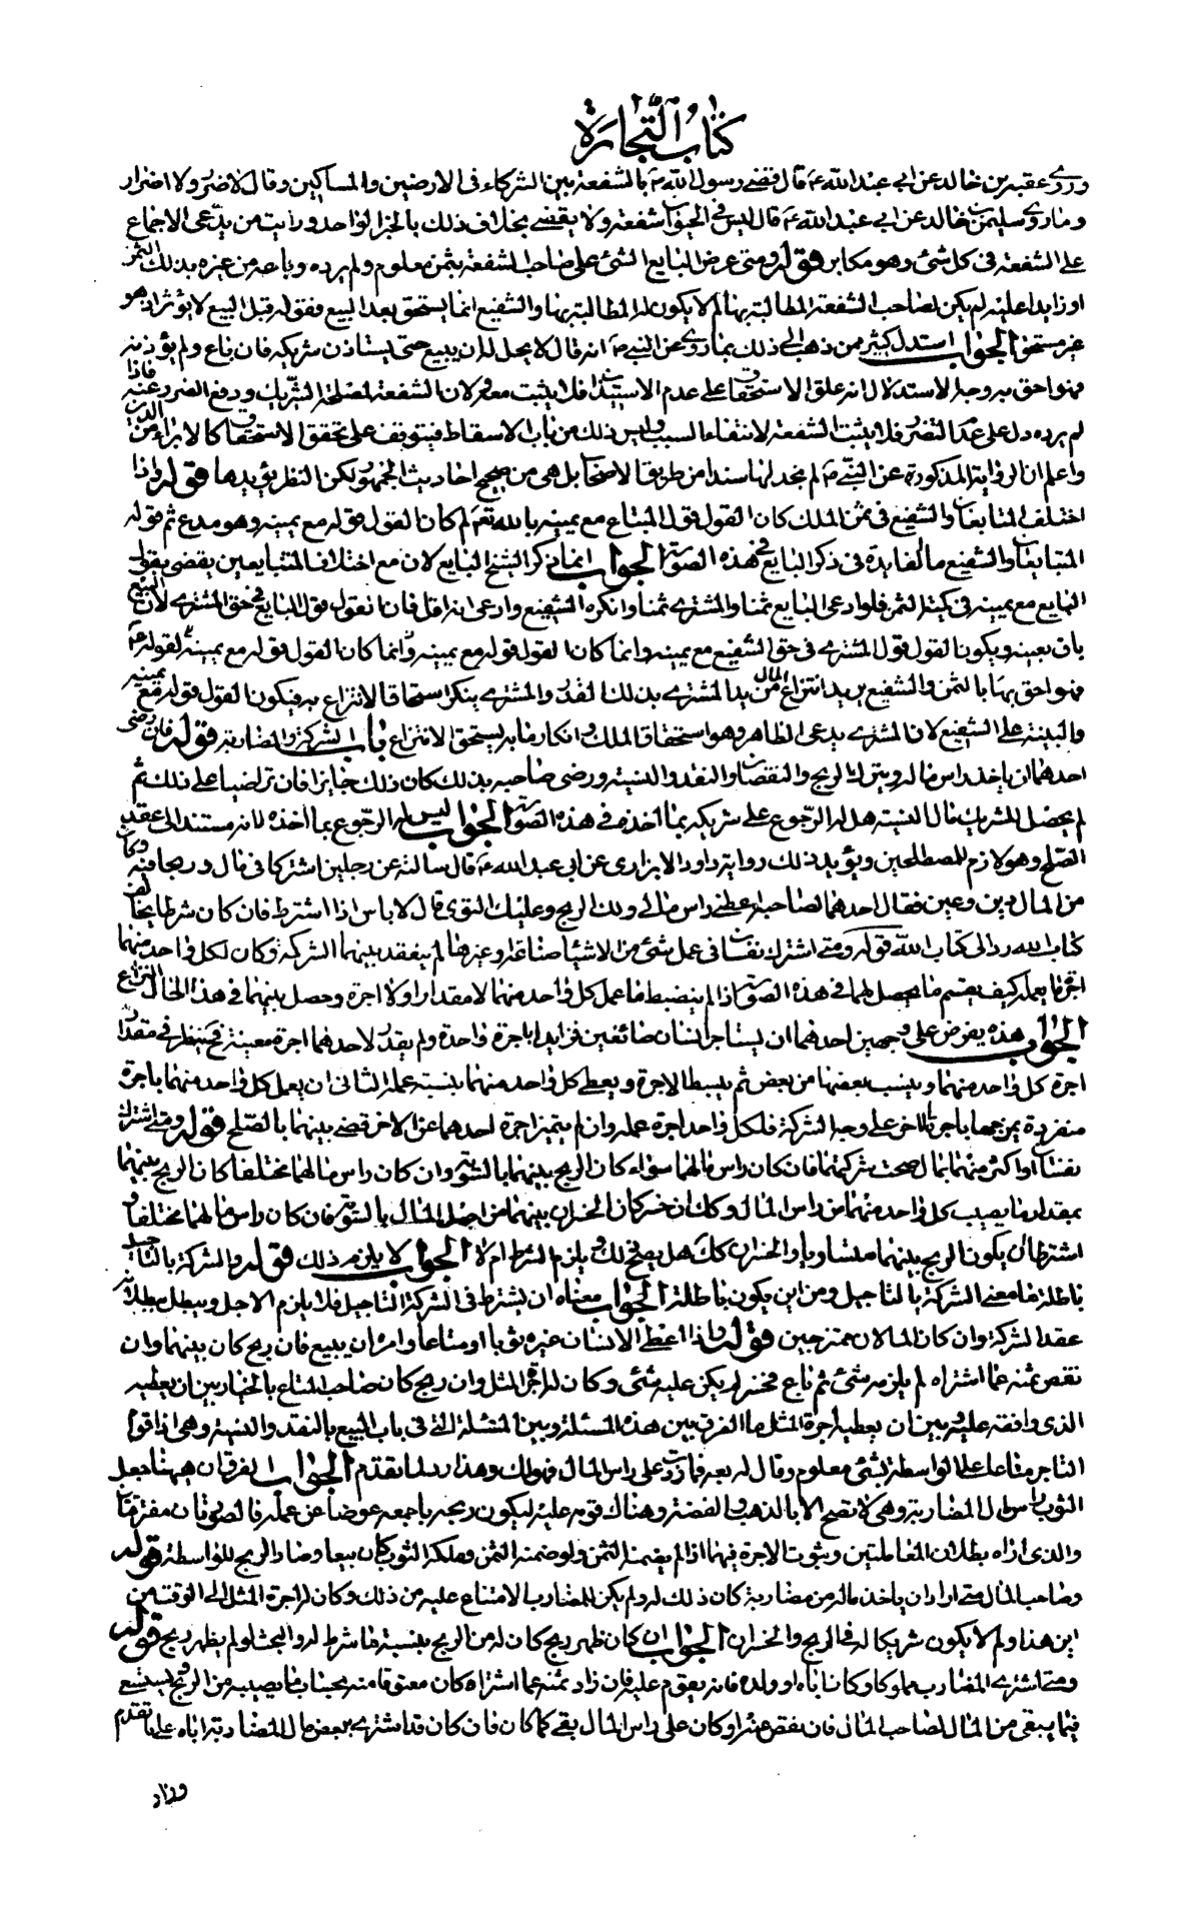 كتاب التجارة
وروى عقبة بن خالد عن ابي عبد الله ع قال قضى رسول الله ص بالشفعة بين الشركاء في الارضين والمساكين وقال لا ضرر ولا اضرار
وما روى سليمن بن خالد عن ابي عبد الله ع قال ليس في الحيوان شفعة ولا يقضى بخلاف ذلك بالخبر الواحد ورايت من يدعى الاجماع
على الشفعة في كل شئ وهو مكابر قوله ومتى عرض البايع الشئ على صاحب الشفعة بثمن معلوم ولم يرده وباعه من غيره بذلك الثمن
او زايدا عليه لم يكن لصاحب الشفعة المطالبة بها لم لا يكون له المطالبة بها والشفيع انما يستحق بعد البيع فقوله قبل البيع لا يؤثر اذ هو
غير مستحق الجواب استدل كثير ممن ذهب الى ذلك بما روى عن النبي ص انه قال لا يحل له ان يبيع حتى يستاذن شريكه فان باع ولم يؤذنه
فهو احق به وجه الاستدلال انه علق الاستحقاق على عدم الاستيذان فلا يثبت معه ولان الشفعة لمصلحة الشريك ودفع الضرر عنه فاذا
لم يرده دل على عدم التضرر فلا يثبت الشفعة لانتفاء السبب وليس ذلك من باب الاسقاط فيتوقف على تحقق الاستحقاق كالابراء من الدين
واعلم ان الرواية المذكورة عن النبي ص لم نجد لها سندا من طريق الاصحاب بل هي من صحيح احاديث الجمهور لكن النظر يؤيدها قوله واذا
اختلف المتبايعان والشفيع في ثمن الملك كان القول قول المبتاع مع يمينه بالله تعم لم كان القول قوله مع يمينه وهو مدع ثم قوله
المتبايعان والشفيع ما الفايدة في ذكر البايع في هذه الصورة الجواب انما ذكر الشيخ البايع لان مع اختلاف المتبايعين يقضى بقول
البايع مع يمينه في كمية الثمن فلو ادعى البايع ثمنا والمشترى ثمنا وانكره الشفيع وادعى انه اقل فانا نقول قول البايع في حق المشترى لان المبيع
باق بعينه ويكون القول قول المشترى في حق الشفيع مع يمينه وانما كان القول قوله مع يمينه وانما كان القول قوله مع يمينه لقوله ع
فهو احق بها بالثمن والشفيع يريد انتزاع المال من يد المشترى بذلك القدر والمشترى ينكر استحقاق الانتزاع به فيكون القول قوله مع يمينه
والبينة على الشفيع لان المشترى يدعى الظاهر وهو استحقاق الملك وانكار ما به يستحق الانتزاع باب الشركة والمضاربة قوله فان رضى
احدهما ان ياخذ راس ماله ويترك الربح والنقصان والنقد والنسية ورضى صاحبه بذلك كان ذلك جايزا فان تراضيا على ذلك ثم
لم يحصل للشريك مال النسية هل له الرجوع على شريكه بما اخذه في هذه الصورة الجواب ليس له الرجوع بما اخذه لانه مستند الى عقد
الصلح وهو لازم للمصطلحين ويؤيد ذلك رواية داود الابزارى عن ابي عبد الله ع قال سالته عن رجلين اشتركا في مال وربحا فيه وكان
من المال دين وعين فقال احدهما لصاحبه اعطنى راس مالى ولك الربح وعليك التوى قال لا باس اذا اشترط فان كان شرطا يخالف
كتاب الله رد الى كتاب الله قوله ومتى اشترك نفسان في عمل شئ من الاشياء صناعة وغيرها لم ينعقد بينهما الشركة وكان لكل واحد منهما
اجرة ما يعمله كيف يقسم ما يحصل لهما في هذه الصورة اذا لم ينضبط ما عمل كل واحد منهما لا مقدارا ولا اجرة وحصل بينهما في هذا الحال النزاع
الجواب هذه يفرض على وجهين احدهما ان يستاجر انسان صائغين فزايدا باجرة واحدة ولم يقدر لاحدهما اجرة معينة فحينئذ ينظر في مقدار
اجرة كل واحد منهما وينسب بعضها من بعض ثم يبسط الاجرة ويعطى كل واحد منهما بنسبة عمله الثانى ان يعمل كل واحد منهما باجرة
منفردة يمزجها باجرة الاخر على وجه الشركة فلكل واحد اجرة عمله وان لم يتميز اجرة احدهما عن الاخر قضى بينهما بالصلح قوله ومتى اشترك
نفسان او اكثر منهما بمال صحت شركتهما فان كان راس مالهما سواء كان الربح بينهما بالسوية وان كان راس مالهما مختلفا كان الربح بينهما
بمقدار ما يصيب كل واحد منهما من راس المال وكك ان خسر كان الخسران بينهما من اصل المال بالسوية فان كان راس مالهما مختلفا و
اشترطا ان يكون الربح بينهما متساويا والخسران كك هل يصح ذلك و يلزم الشرط ام لا الجواب لا يلزم ذلك قوله والشركة بالتاجيل
باطلة ما معنى الشركة بالتاجيل ومن اين يكون باطلة الجواب معناه ان يشترط في الشركة التاجيل فلا يلزم الاجل ويبطل مطالبة
عقد الشركة وان كان المالان ممتزجين قوله واذا اعطى الانسان غيره ثوبا او متاعا وامره ان يبيع فان ربح كان بينهما وان
نقص ثمنه عما اشتراه لم يلزمه شئ ثم باع فخسر لم يكن عليه شئ وكان له اجرة المثل وان ربح كان صاحب المتاع بالخيار بين ان يعطيه
الذى وافقه عليه وبين ان يعطيه اجرة المثل ما الفرق بين هذه المسئلة وبين المسئلة التى في باب البيع بالنقد والنسية وهى اذا قوم
التاجر متاعا على الواسطة بشئ معلوم وقال له بعه فما زدت على راس المال فهو لك وهذا رد لما تقدم الجواب الفرق ان هيهنا جعل
الثوب راس مال المضاربة وهى لا تصح الا بالذهب والفضة وهناك قوم عليه ليكون ربحه باجمعه عوضا عن عمله فالصورتان مفترقتان
والذى اراه بطلان المعاملتين وثبوت الاجرة فيهما اذا لم يضمنه الثمن ولو ضمنه الثمن وملكه الثوب كان بيعا وصار الربح للواسطة قوله
وصاحب المال متى اراد ان ياخذ ماله من مضاربة كان ذلك له ولم يكن للمضارب الامتناع عليه من ذلك وكان له اجرة المثل الى الوقت من
اين هذا ولم لا يكون شريكا له في الربح والخسران الجواب ان كان ظهر ربح كان له من الربح بنسبة ما شرط له والبحث لو لم يظهر ربح قوله
ومتى اشترى المضارب مملوكا وكان اباه او ولده فانه يقوم عليه فان زاد ثمنه عما اشتراه كان معتوقا منه بحساب ما يصيبه من الربح ويستسعى
فيما يبقى من المال لصاحب المال فان نقص عنه او كان على راس المال بقى كما كان فان كان قد اشترى ببعض مال المضاربة اباه على ما تقدم
وزاد